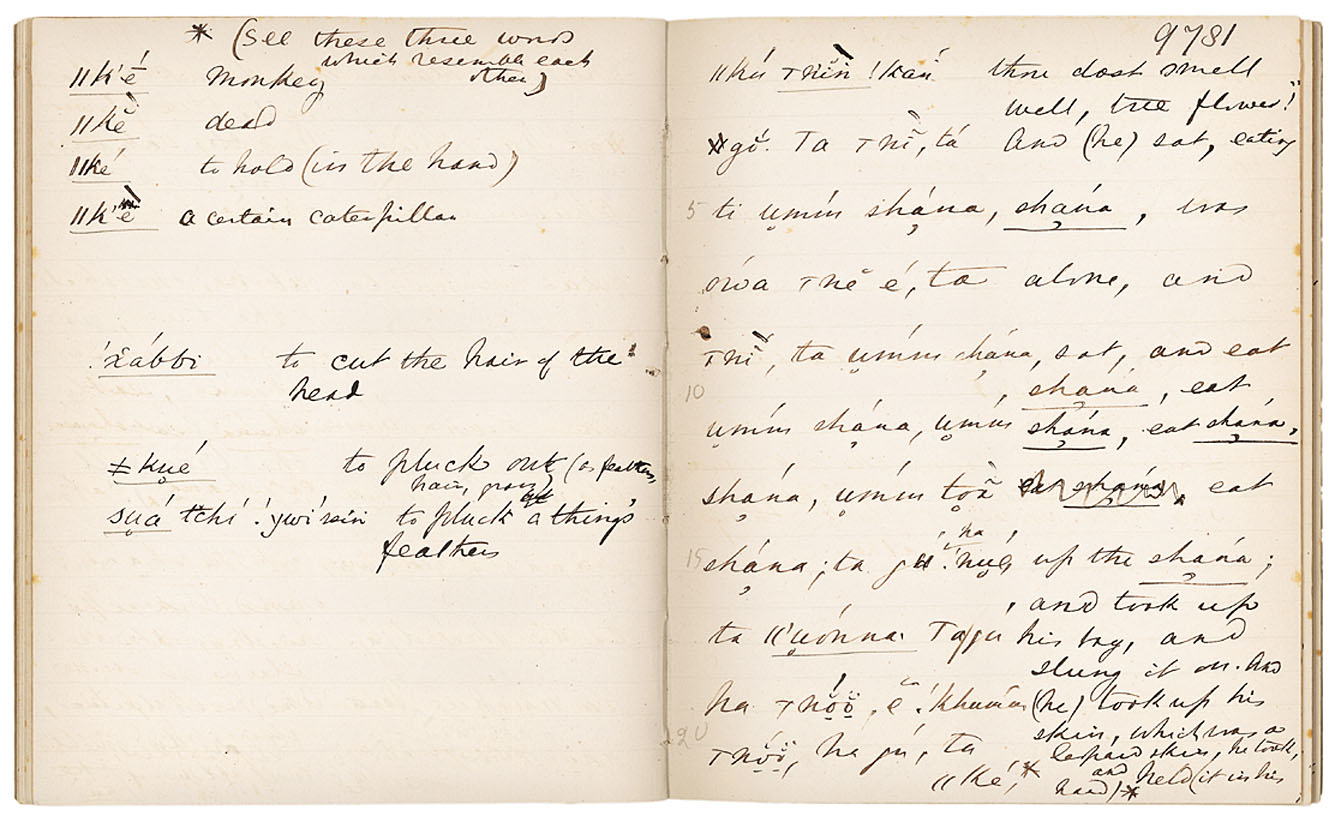 * (See these three words
which resemble each
other)
ǁk'é monkey
ǁkĕ̀ dead
ǁké to hold (in the hand)
ǁk'è a certain caterpillar
!x̌ábbi to cut the hair of the
head
ǂkṵé to pluck out (as feathers,
hair, grass)
sṵá tchí to pluck a thing's
feathers
9781
ǁkú !káń thou dost smell
well, tree flower!
Ta tá And (he) sat, eating
5 ti ṵmím shána, shána, was
é, ta alone, and
ta ṵmím shána, sat, and eat
10 shána, eat
ṵmím shána, ṵmím shána, eat shána,
shána, ṵmím eat
15 shána; ta up the shána;
and took up
ta his bag, and
slung it on. And
ha (he) took up his
skin, which was a
leopard skin, he took,
20 ha gú, ta and held (it in his
ǁké,* hand)*